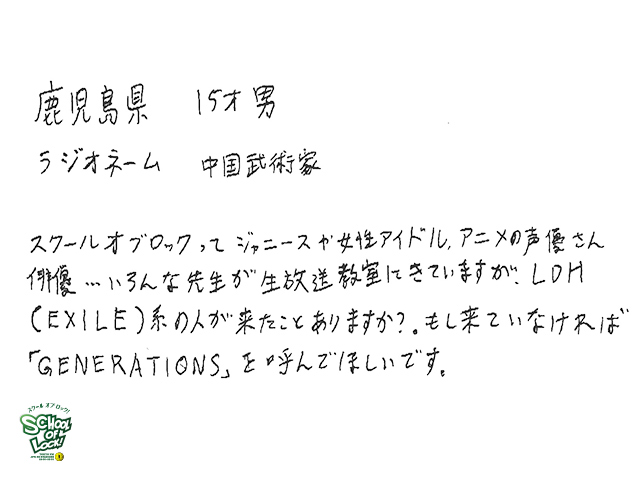 鹿児島県 15才 男
ラジオネーム 中国武術家
スクールオブロックって ジャニースや女性アイドル、アニメの声優さん
俳優…いろんな先生が生放送教室にきていますが、LDH
(EXILE)系の人が来たことありますか?。もし来ていなければ
「GENERATIONS」を呼んでほしいです。
スクール オブ ロック!
SCHOOL
OF
LOCK!